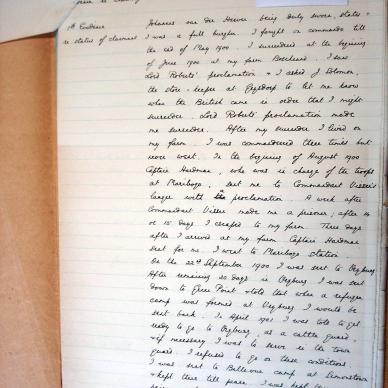 1st Evidence
re status of claimant
Johannes van der Merwe being duly sworn, states:-
I was a full burgher. I fought on commando till
the end of May 1900. I surrendered at the beginning
of June 1900 at my farm I saw
Lord Roberts' proclamation & I asked J. Solomon,
the store-keeper at to let me know
when the British came in order that I might
surrender. Lord Roberts' proclamation made
me surrender. After my surrender I lived on
my farm. I was commandeered three times but
never went. In the beginning of August 1900
Captain Hardman, who was in charge of the troops
at Maribogo, sent me to Commandant
laager with the proclamation. A week after
Commandant made me a prisoner; after 14
or 15 days I escaped to my farm. Three days
after I arrived at my farm Captain Hardman
sent for me. I went to Maribogo station.
On the 22nd September 1900 I was sent to Vryburg
After remaining 20 days in Vryburg I was sent
down to & told that when a refugee
camp was formed at Vryburg I would be
sent back. In April 1901 I was told to get
ready to go to Vryburg, as a cattle guard,
& if necessary I was to serve in the town
guard. I refused to go on these conditions
I was sent to Bellevue camp at Simonstown
& kept there till peace. I was kept